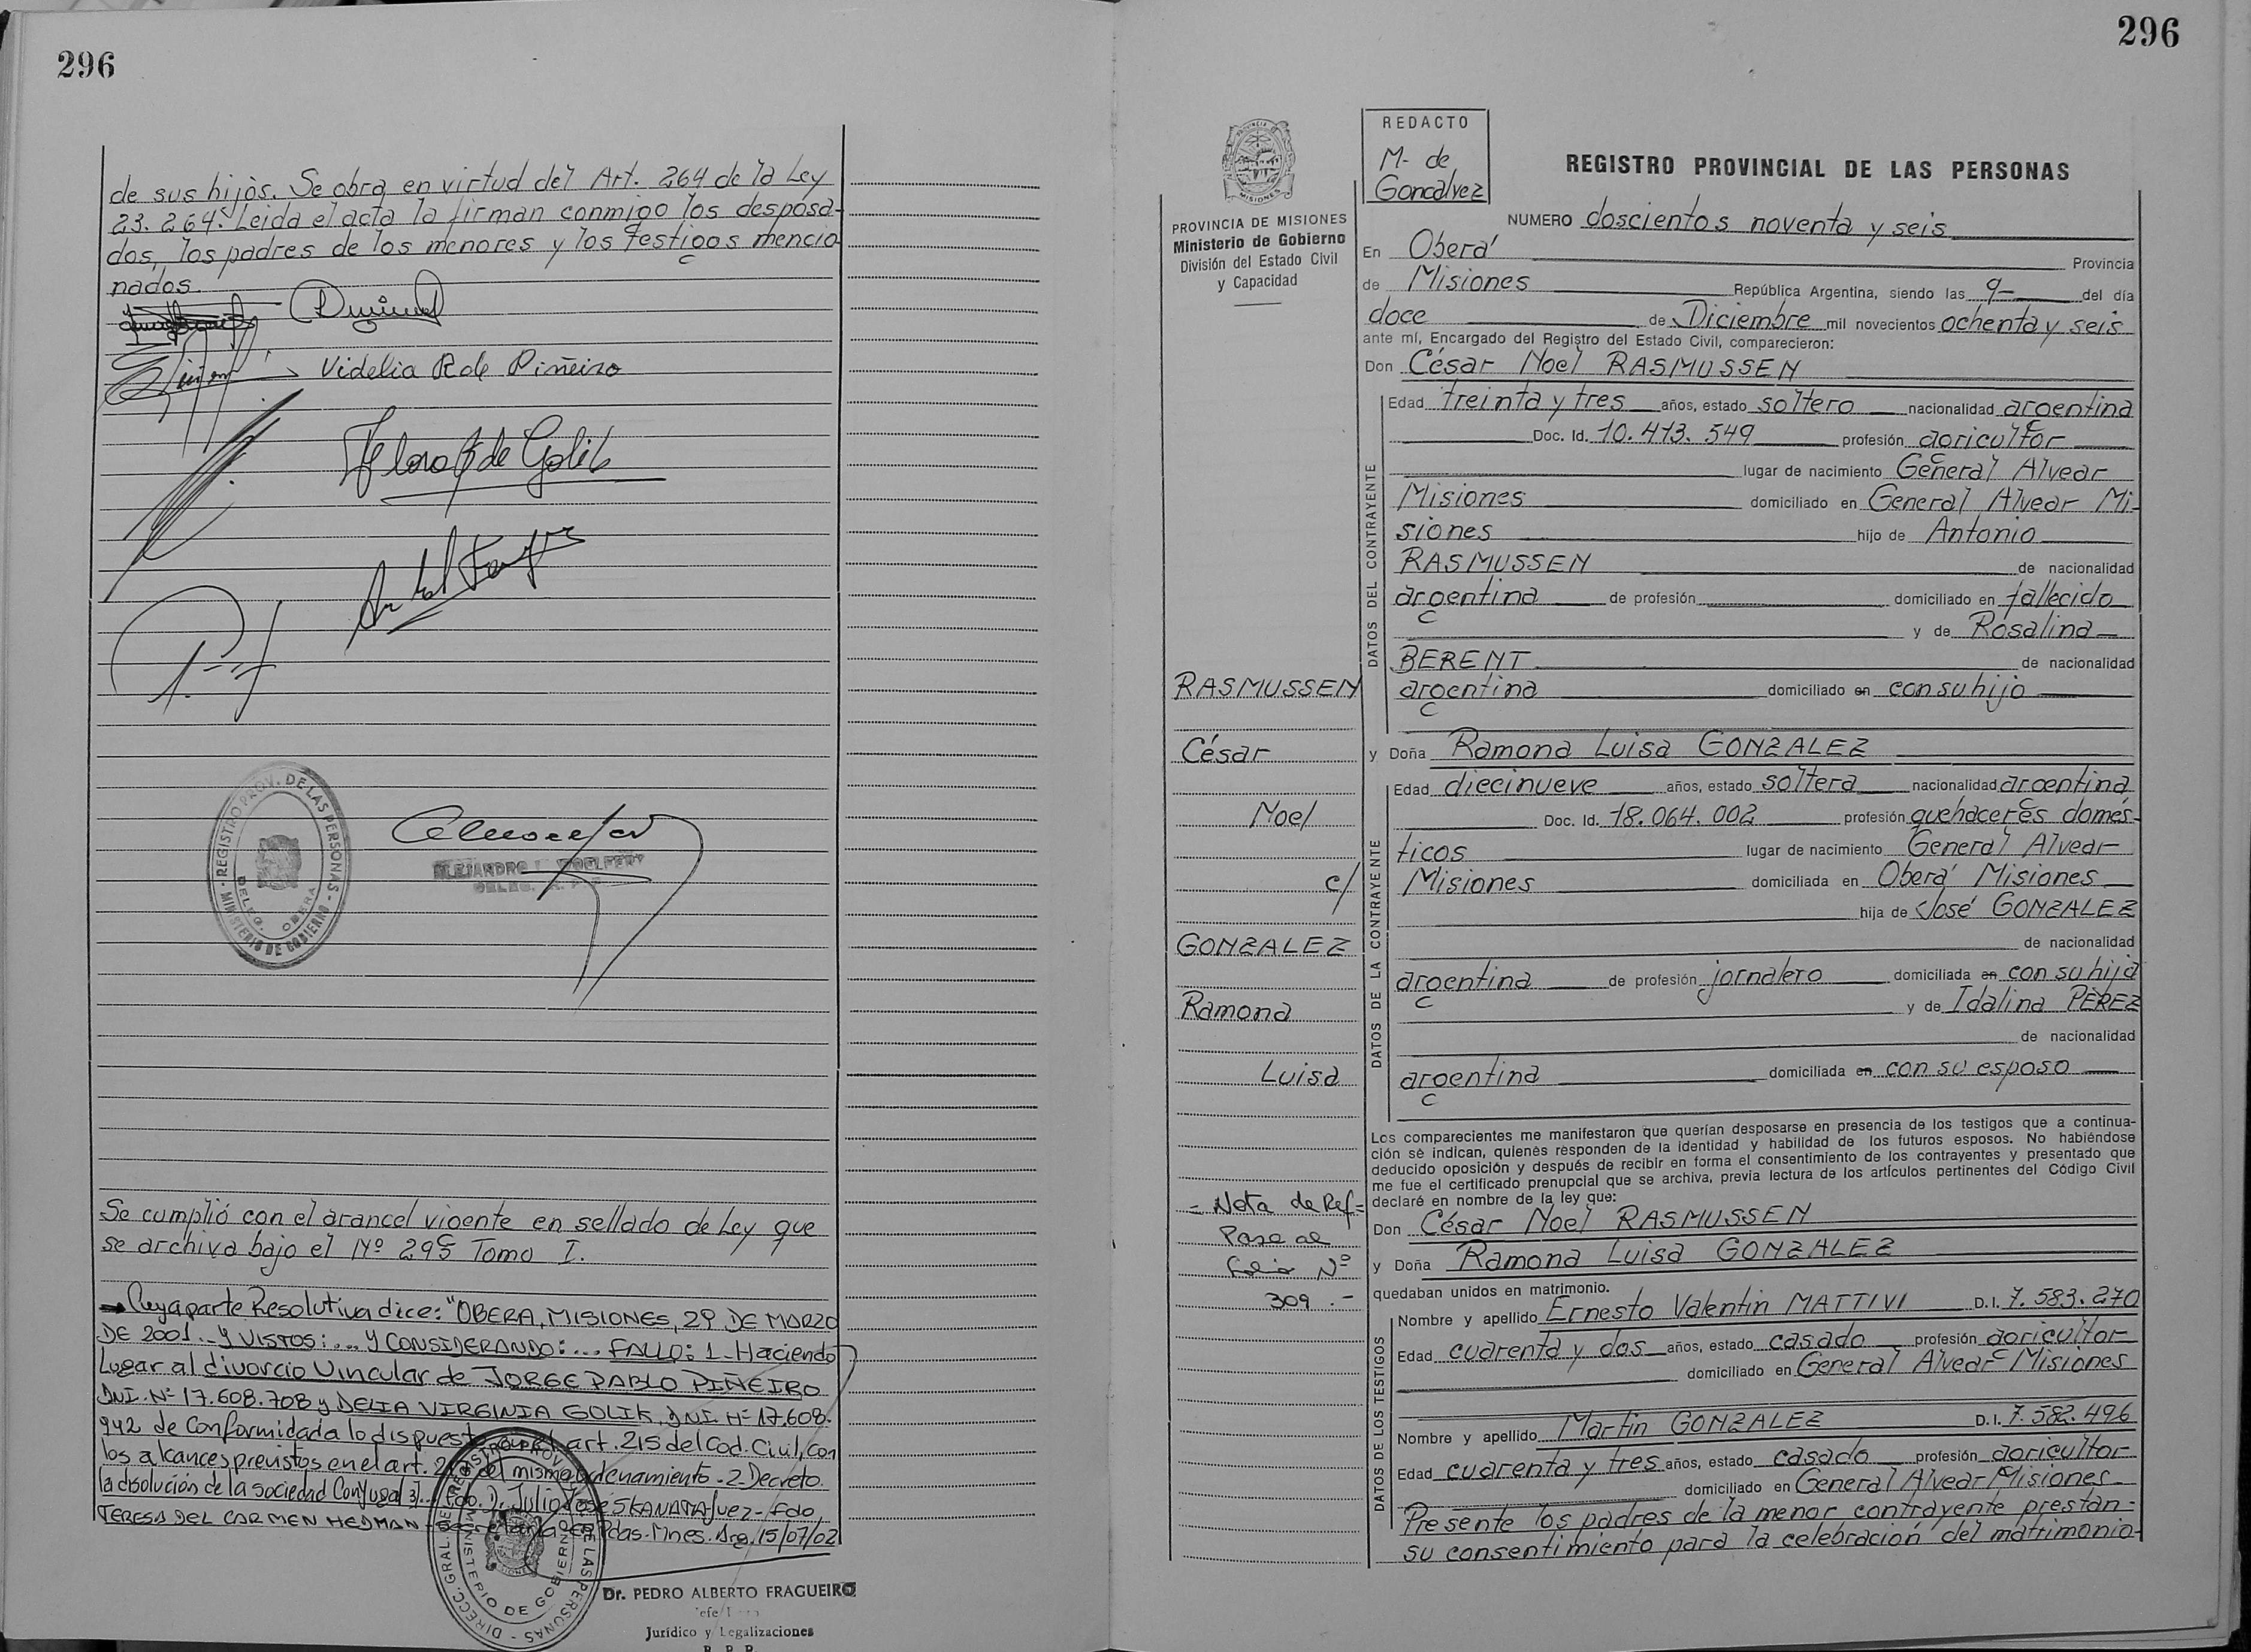 296
de sus hijos. Se obra en virtud del Art. 264 de la Ley
23.264. Leida el acta la firman conmigo los desposa-
dos, los padres de los menores y los testigos mencio
nados.
Videlia R de Piñeiro
de Golik
REGISTRO PROV. DE LAS PERSONAS - MINISTERIO DE GOBIERNO -
DELEG. OBERA
ALEJANDRO
Se cumplió con el arancel vigente en sellado de Ley que
se archiva bajo el Nº 295 Tomo I.
Cuya parte Resolutiva dice: "OBERA, MISIONES, 29 DE MARZO
DE 2001. Y VISTOS: ... Y CONSIDERANDO: ... FALLO: 1- Haciendo
Lugar al divorcio Vincular de JORGE PABLO PIÑEIRO
DNI. Nº 17.608.708 y DELIA VIRGINIA GOLIK, DNI. Nº 17.608.
942 de Conformidad a lo dispuesto por el art. 215 del Cod. Civil, con
los alcances previstos en el art. del mismo ordenamiento. 2 Decreto
la disolución de la sociedad Conyugal 3)... Fdo.). Julio José SKANATA Juez - Fdo
TERESA DEL CARMEN HEDMAN - Secretaria Pdas. Mnes. Arg. 15/07/02
DIRECC. GRAL. DE REGISTRO PROV. DE LAS PERSONAS -
MINISTERIO DE GOBIERNO
Dr. PEDRO ALBERTO FRAGUEIRO
Jurídico y Legalizaciones
R. P. P.
296
PROVINCIA DE MISIONES
Ministerio de Gobierno
División del Estado Civil
y Capacidad
REDACTO
M- de
Goncalvez
REGISTRO PROVINCIAL DE LAS PERSONAS
NUMERO doscientos noventa y seis
En Oberá Provincia
de Misiones República Argentina, siendo las 9- del día
doce de Diciembre mil novecientos ochenta y seis
ante mí, Encargado del Registro del Estado Civil, comparecieron:
Don César Noel RASMUSSEN
DATOS DEL CONTRAYENTE
Edad treinta y tres años, estado soltero nacionalidad argentina
Doc. Id. 10.413.549 profesión agricultor
lugar de nacimiento General Alvear
Misiones domiciliado en General Alvear Mi-
siones hijo de Antonio
RASMUSSEN de nacionalidad
argentina de profesión domiciliado en fallecido
y de Rosalina
BERENT de nacionalidad
argentina domiciliado en con su hijo
y Doña Ramona Luisa GONZALEZ
DATOS DE LA CONTRAYENTE
Edad diecinueve años, estado soltera nacionalidad argentina
Doc. Id. 18.064.002 profesión quehaceres domés-
ticos lugar de nacimiento General Alvear
Misiones domiciliada en Oberá Misiones
hija de José GONZALEZ
de nacionalidad
argentina de profesión jornalero domiciliada en con su hija
y de Idalina PEREZ
de nacionalidad
argentina domiciliada en con su esposo
RASMUSSEN
César
Noel
c/
GONZALEZ
Ramona
Luisa
- Nota de Ref=
Pase al
folio Nº
309.-
Los comparecientes me manifestaron que querían desposarse en presencia de los testigos que a continua-
ción se indican, quienes responden de la identidad y habilidad de los futuros esposos. No habiéndose
deducido oposición y después de recibir en forma el consentimiento de los contrayentes y presentado que
me fue el certificado prenupcial que se archiva, previa lectura de los artículos pertinentes del Código Civil
declaré en nombre de la ley que:
Don César Noel RASMUSSEN
y Doña Ramona Luisa GONZALEZ
quedaban unidos en matrimonio.
DATOS DE LOS TESTIGOS
Nombre y apellido Ernesto Valentin MATTIVI D.I. 7.583.270
Edad cuarenta y dos años, estado casado profesión agricultor
domiciliado en General Alvear Misiones
Nombre y apellido Martin GONZALEZ D.I. 7.582.496
Edad cuarenta y tres años, estado casado profesión agricultor
domiciliado en General Alvear Misiones
Presente los padres de la menor contrayente prestan-
su consentimiento para la celebración del matrimonio-